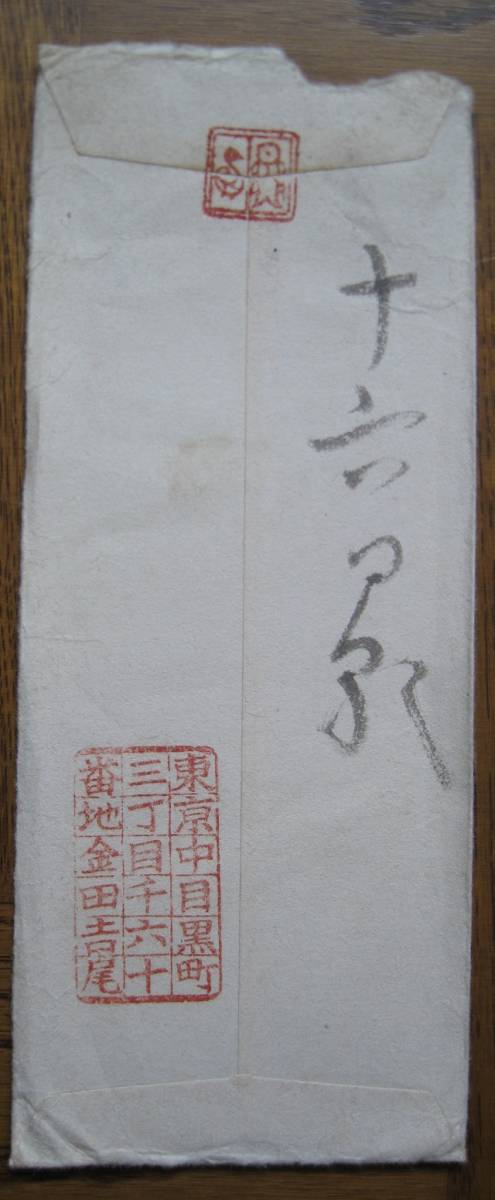 十六日朝
東京中目黒町
三丁目千六十
番地金田吉尾